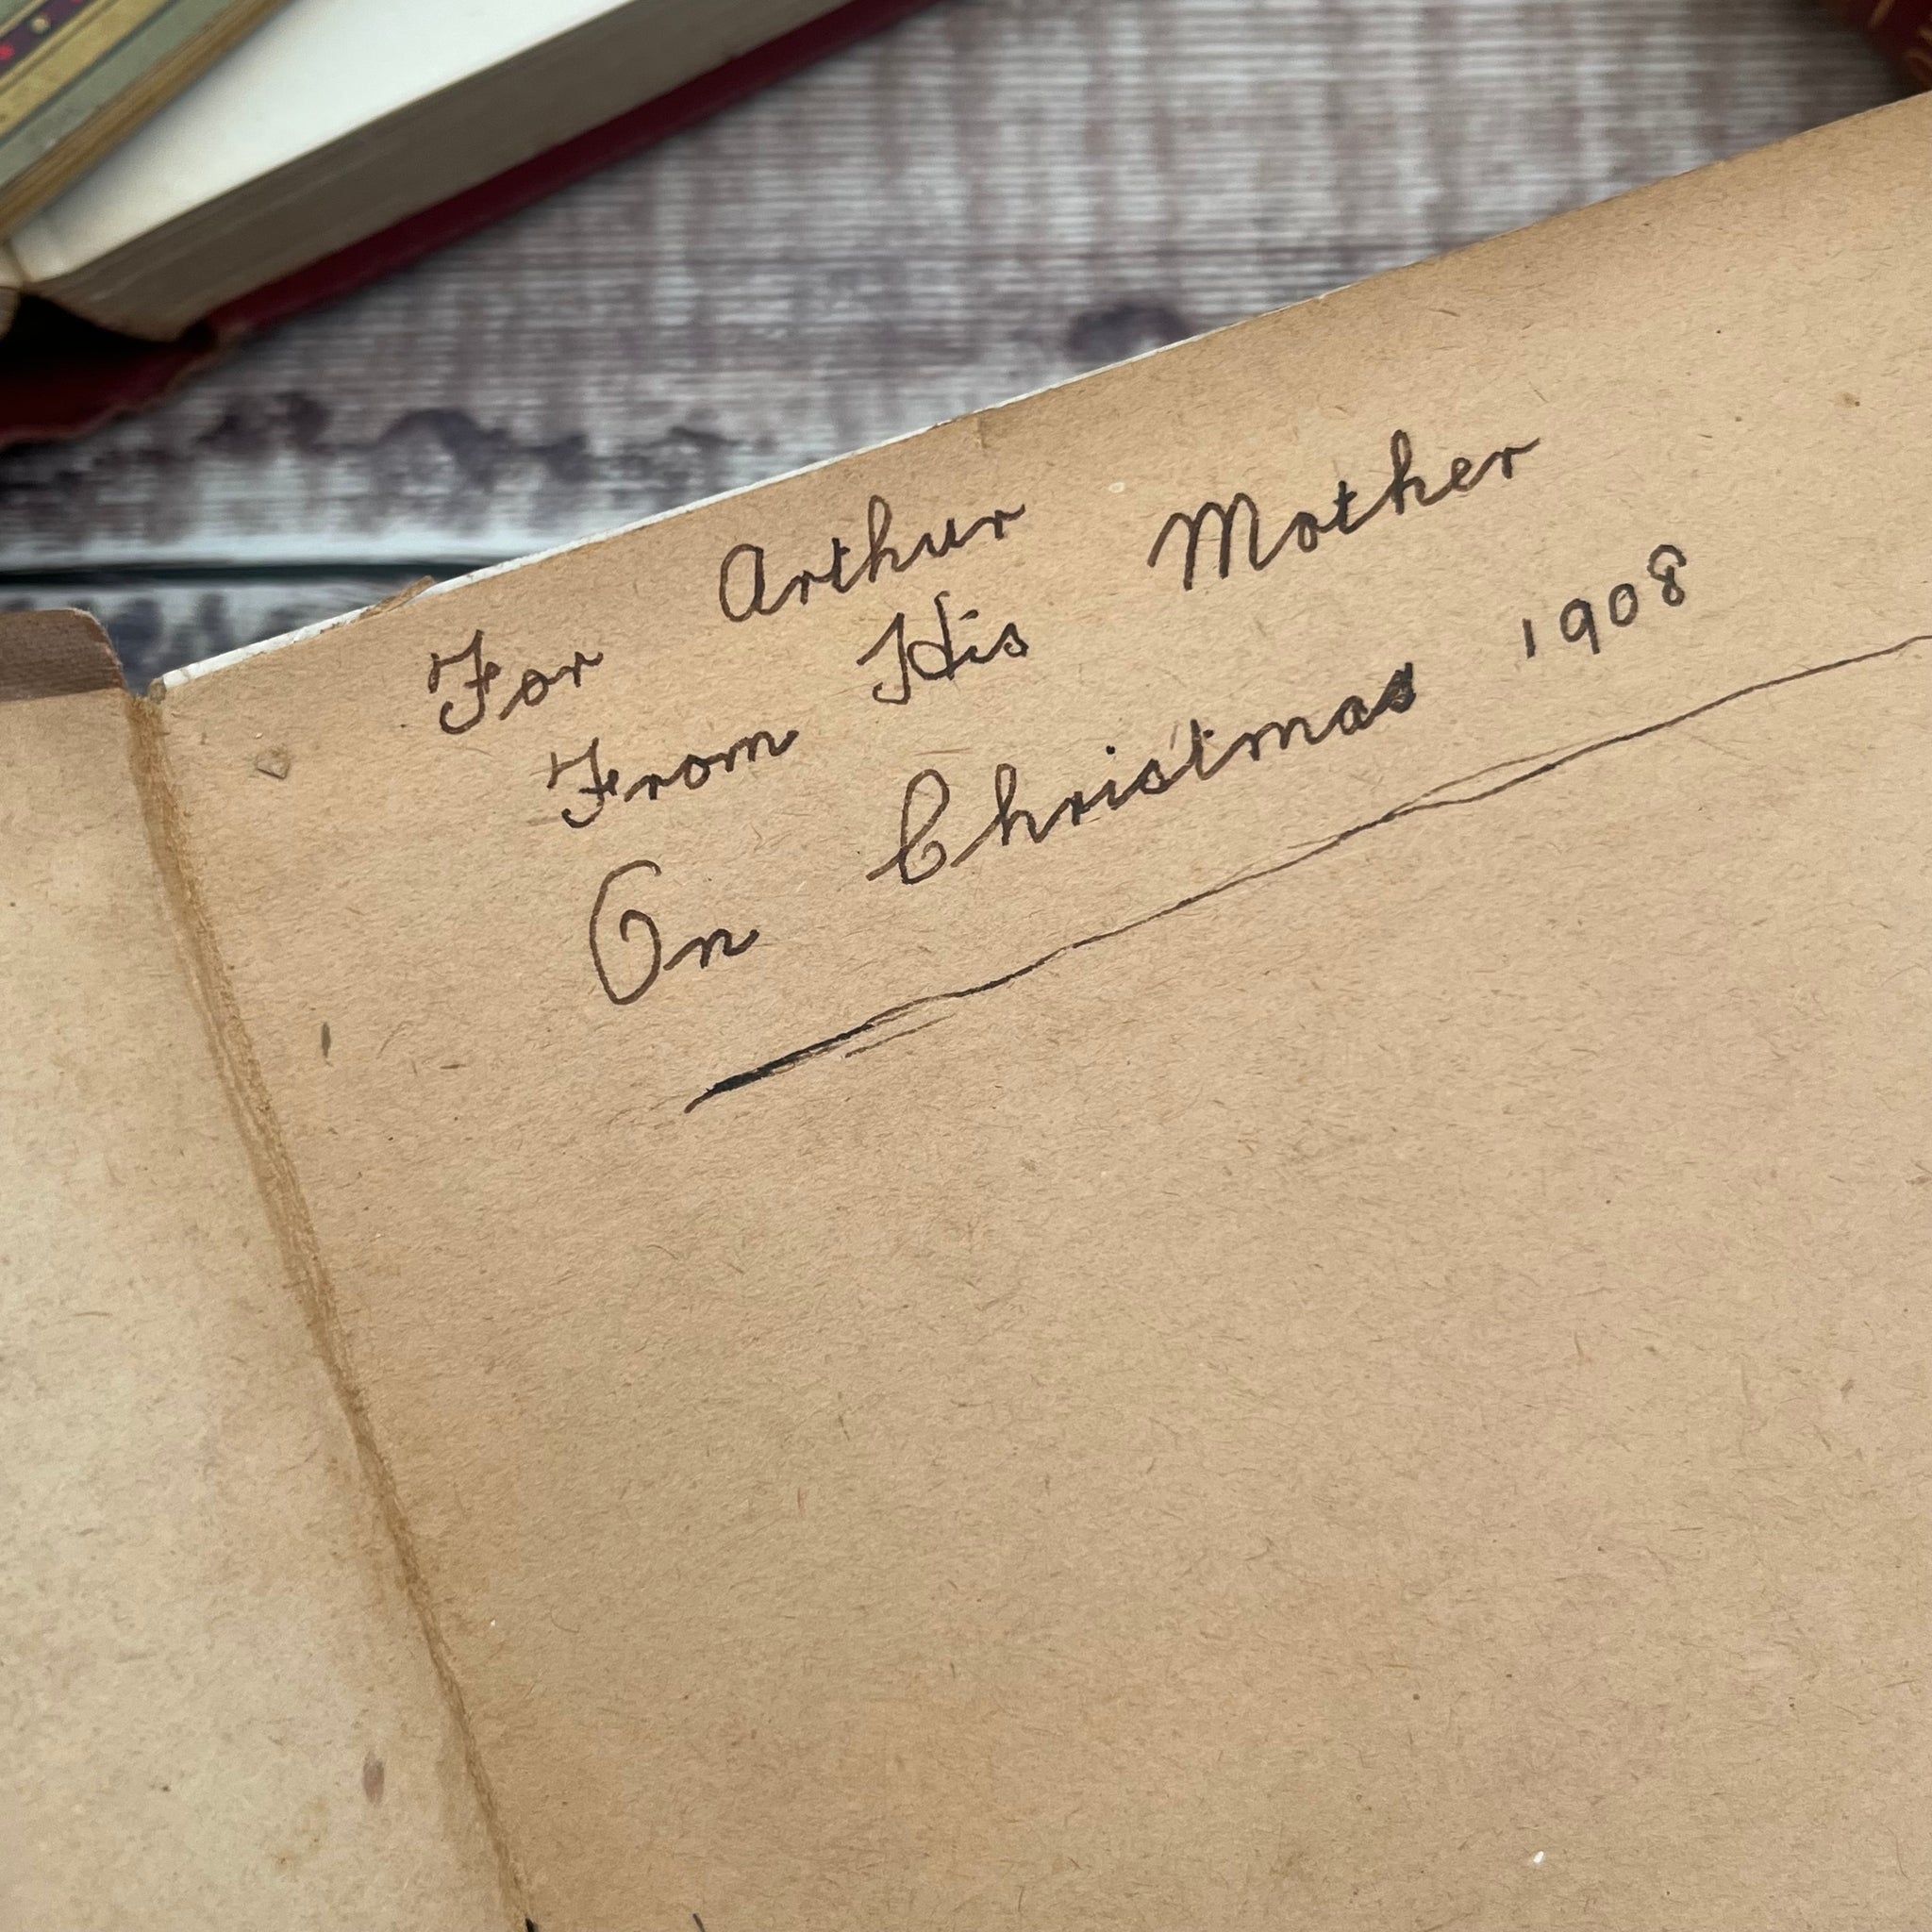 For Arthur
From His Mother
On Christmas 1908